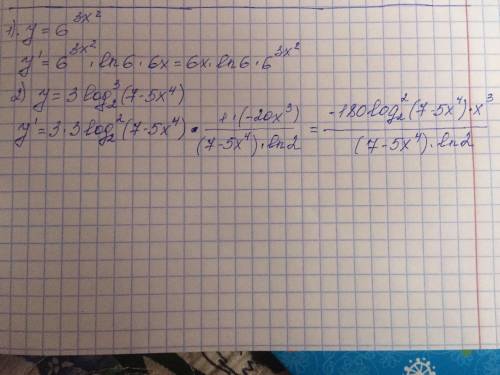 1). y = 6^{3x^2}
y' = 6^{3x^2} · ln6 · 6x = 6x · ln6 · 6^{3x^2}
2) y = 3 log_2^3 (7-5x^4)
y' = 3 · 3 log_2^2 (7-5x^4) · \frac{1 · (-20x^3)}{(7-5x^4) · ln2} = \frac{-180 log_2^2 (7-5x^4) · x^3}{(7-5x^4) · ln2}